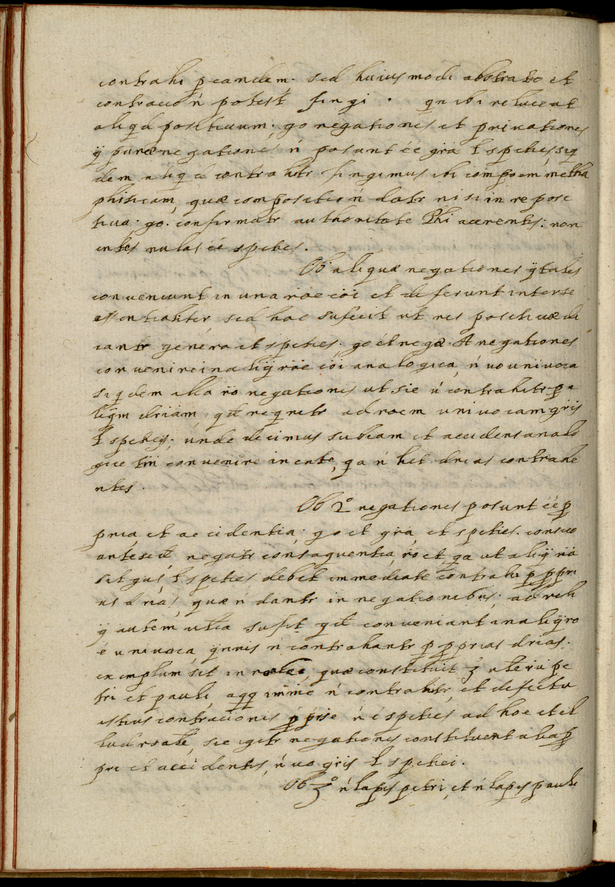 contrahi p eandem. sed huiusmodi abstratio et
contracio ń potest fingi. qn ibi reluceat
aliqd positiuum. go negationes et priuationes
q̃ puræ negationes, ń posunt eé gra l speties siq
dem aliqæ contrahtr fingimus ibi compoem metha
phisicam, quæ compositio ń datr nisi in re posi
tiua. go. confirmatr authoritate Phi aserentis. non
entes nulas eé speties.
Ob aliquæ negationes q̃ tales
conueniunt in una roe coi et diferunt inter se
essentialiter sed hoc suficit ut res positiuæ di
cantr genera et speties. go et negæ. R negationes
conuenire in aliq roe coi analogica, ń uo uniuoca
siqdem illa ro negationis ut sic ń contrahitr p
liqm driam, qd reqritr ad roem uniuocam gris
l spetiei. unde dicimus subiam et accidens analo
gice tm̃ conuenire in ente, qa ń het drias contrahe
ntes.
Ob 2.º negationes posunt eé p
pria et accidentia. go et gra et speties. conseo
antesed negatr consaquentia ro et qa ut aliq ro
sit gus l speties debet immediate contrahi p ppri
as drias, quæ ń dantr in negationibus; ad reli
q̃ autem ulia sufit qd conueniant in aliq ro
e uniuoca qnuis ń contrahantr p pprias drias.
exemplum sit in quæ constituit 3 ule rú pe
tri et pauli, aqq imme ń contrahitr et defectu
istius contracionis pprie ń e speties ad hoc et il
lud rsate, sic igitr negationes constituent alia p
pri et accidentis, ń uo gris l spetiei.
Ob 3.º ń lapis petri, et ń lapis pauli